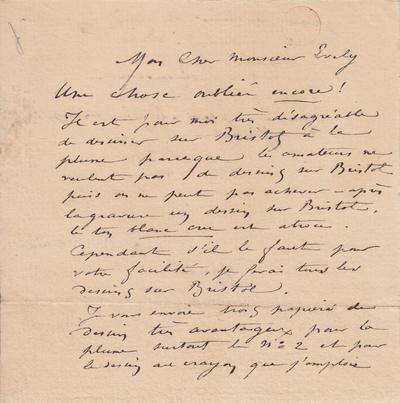 Mon Cher Monsieur Evely
Une chose oubliée encore !
Il est pour moi très désagréable
de dessiner sur Bristol à la
plume parceque les amateurs ne
veulent pas de dessins sur Bristol
puis on ne peut pas achever – après
la gravure un dessin sur Bristol,
le ton blanc cru est atroce.
Cependant s'il le faut pour
votre facilité, je ferai tous les
dessins sur Bristol.
Je vous envoie trois papiers de
dessin très avantageux pour la
plume surtout le No 2 et pour
le dessin au crayon que j'emploie